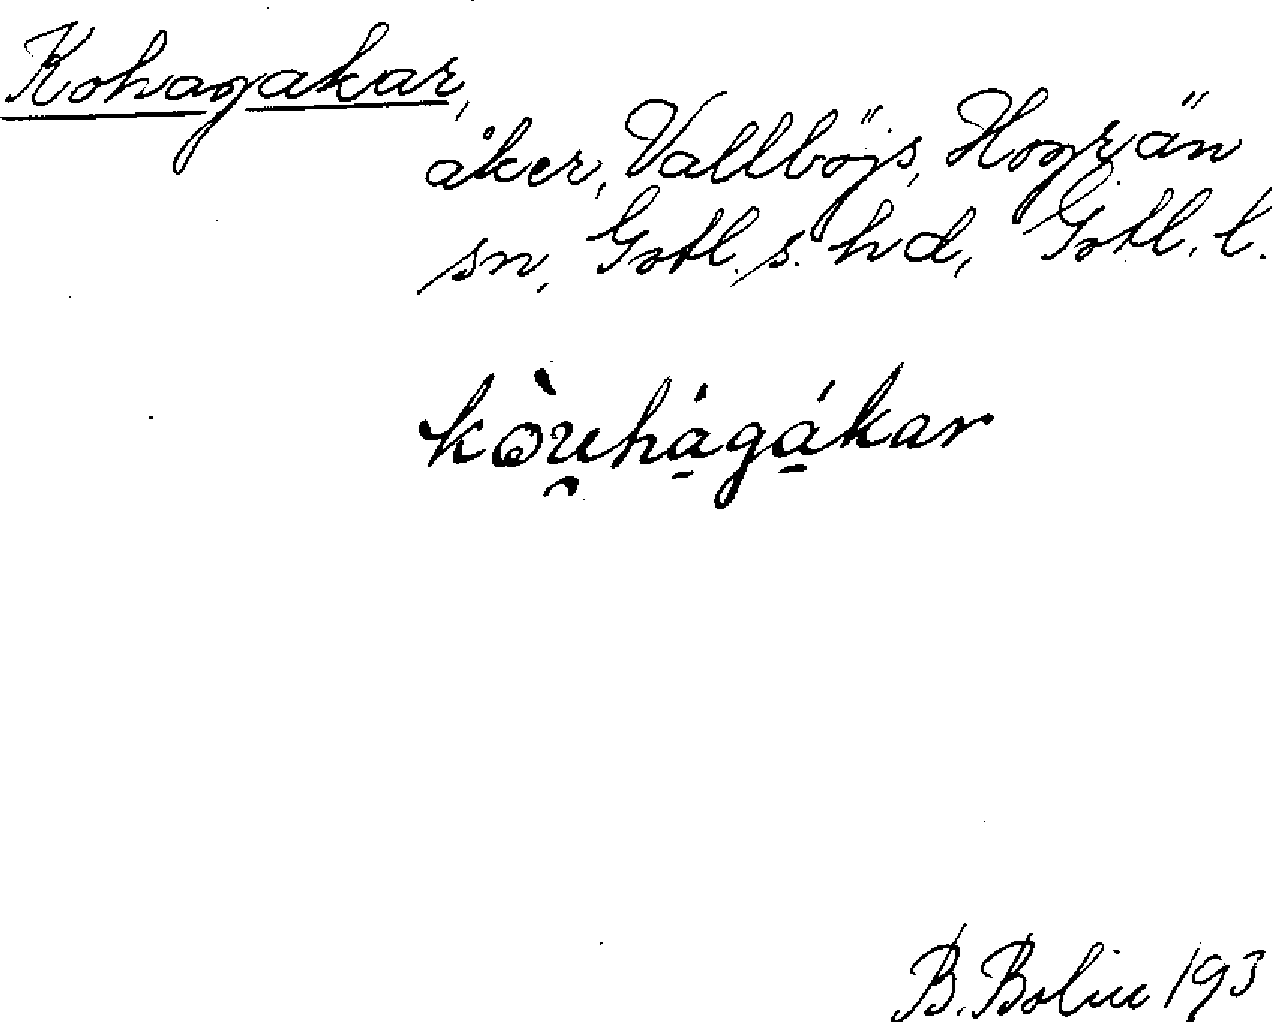 Kohagakar,
åker, Vallböjs, Hogrän
sn, Gotl. s. hd, Gotl. l.
kòu̯há̱gá̱kar
B. Bolin 193